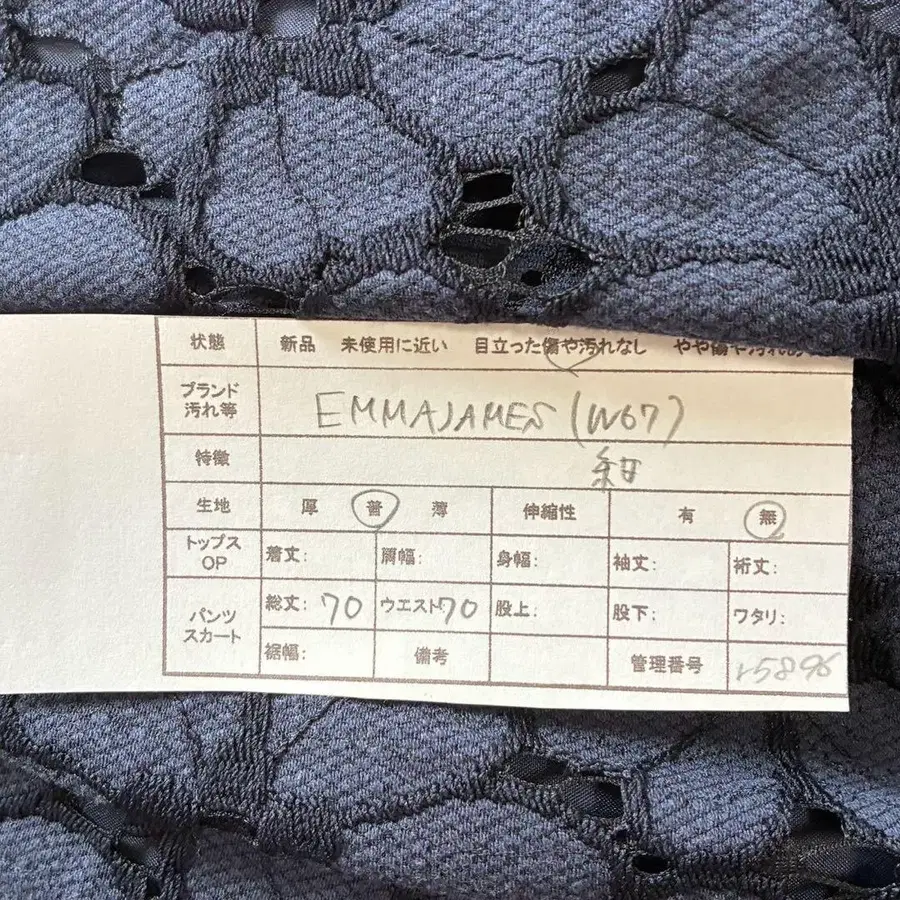 状態 新品 未使用に近い 目立った傷や汚れなし やや傷や汚れあ
ブランド
汚れ等 EMMAJAMES (W67)
特徴 紺
生地 厚 普 薄 伸縮性 有 無
トップス
OP 着丈: 肩幅: 身幅: 袖丈: 裄丈:
パンツ
スカート 総丈: 70 ウエスト: 70 股上: 股下: ワタリ:
裾幅: 備考 管理番号 r5896